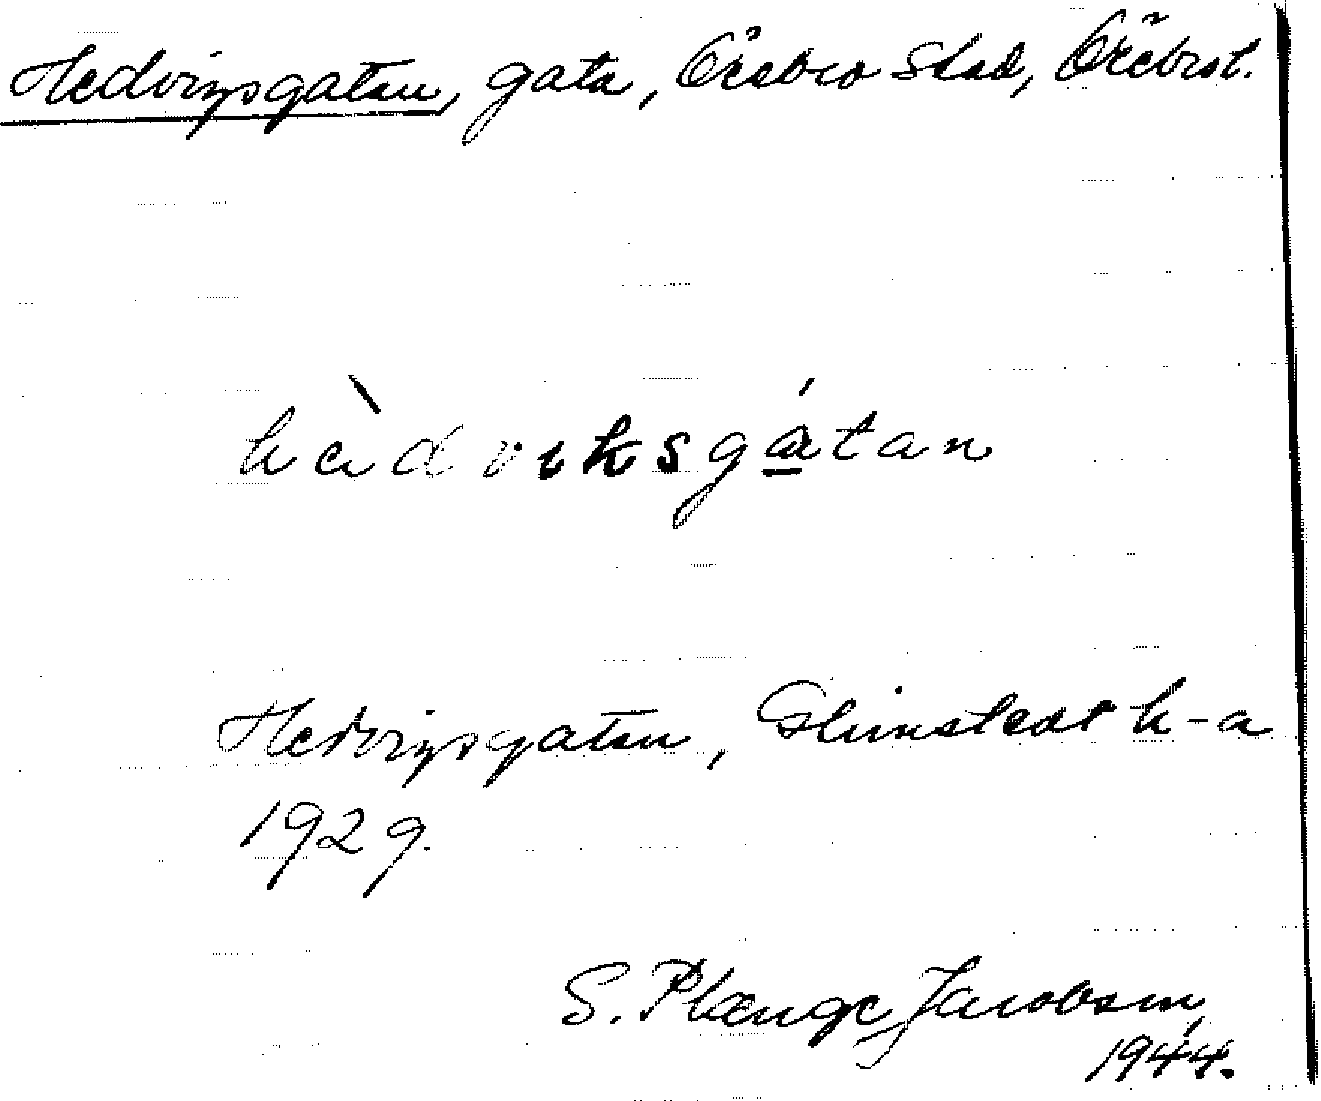 Hedvigsgatan, gata, Örebro stad, Örebrol.
hædviksgátan
Hedvigsgatan, Glimstedt k-a
1929.
S. Plænge Jacobson,
1944.